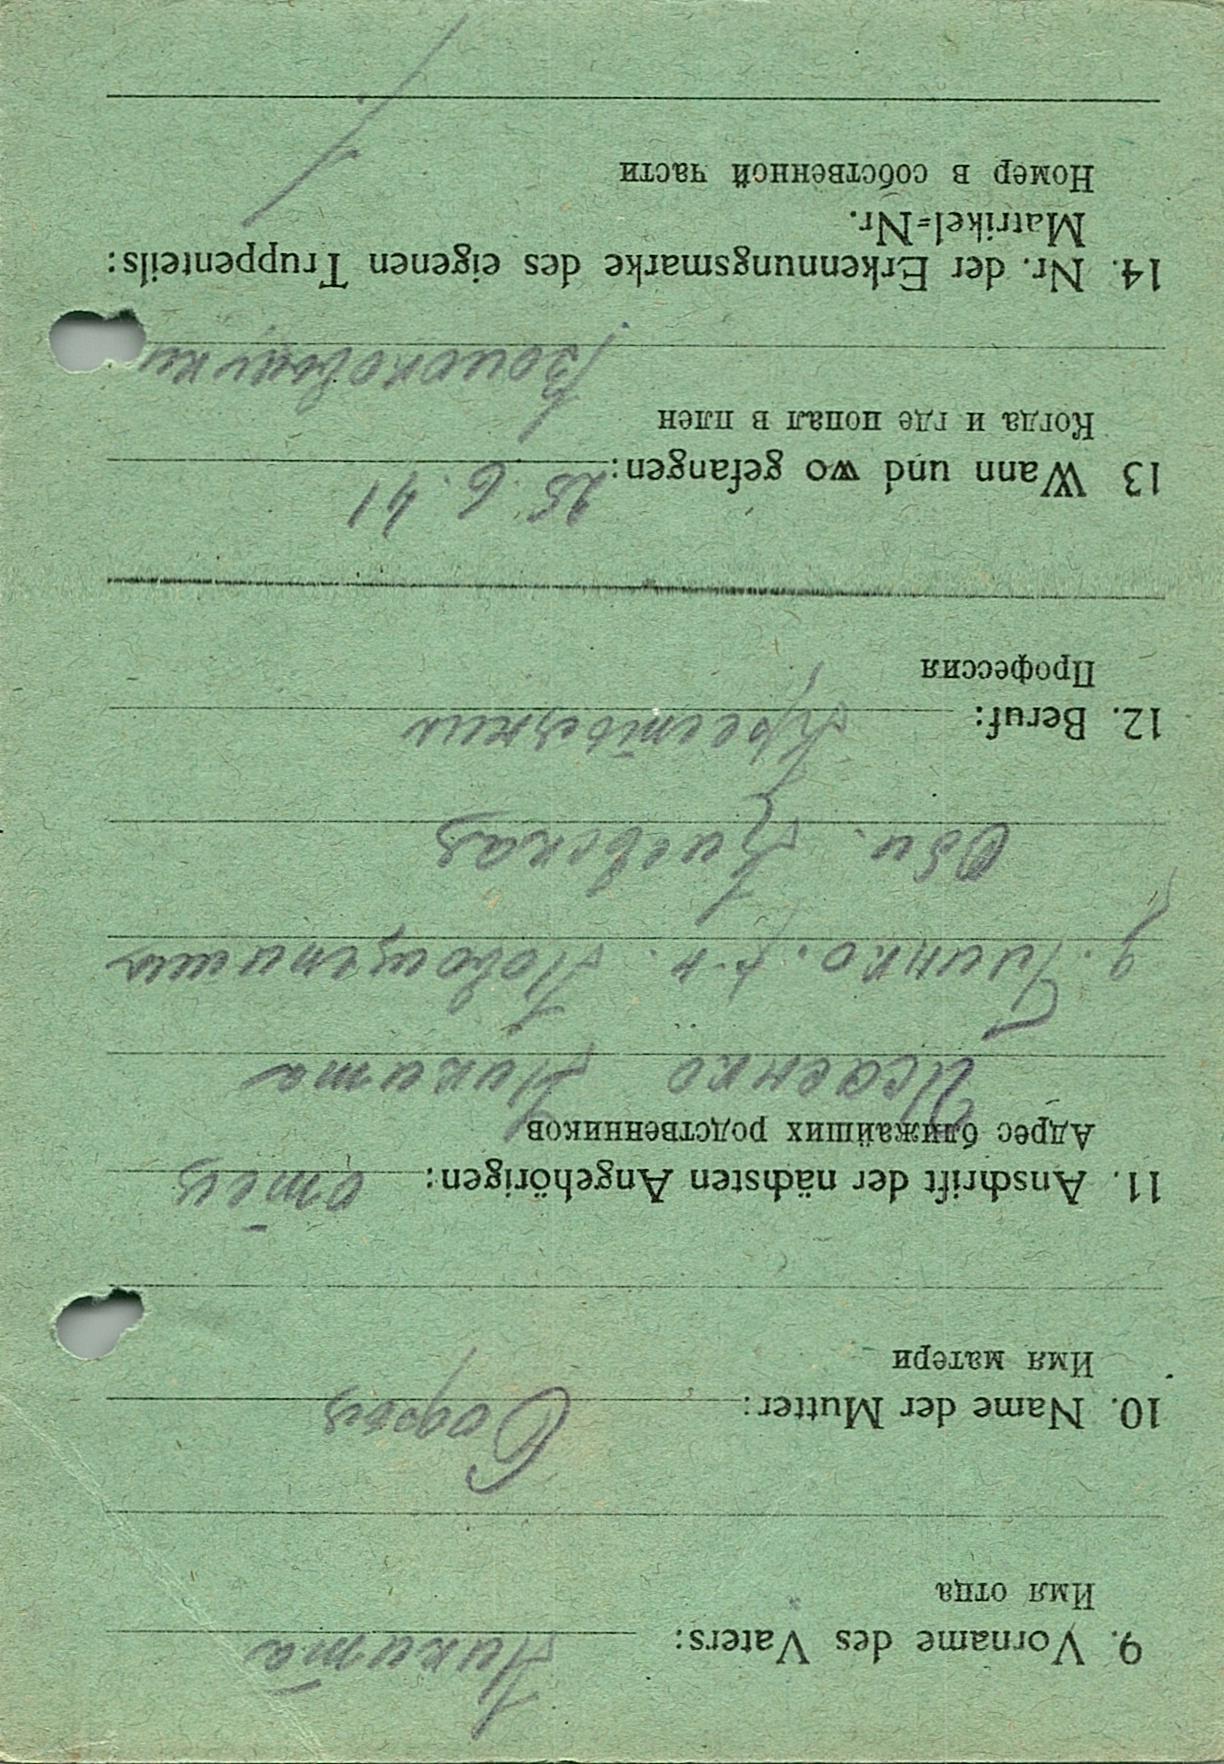 9. Vorname des Vaters: Никита
Имя отца
10. Name der Mutter: Софья
Имя матери
11. Anschrift der nächsten Angehörigen: отец
Адрес ближайших родственников
Исаенко Никита
д.
Обл. Киевская
12. Beruf: Крестьянин
Профессия
13 Wann und wo gefangen: 25.6.41
Когда и где попал в плен
14. Nr. der Erkennungsmarke des eigenen Truppenteils:
Matrikel=Nr.
Номер в собственной части